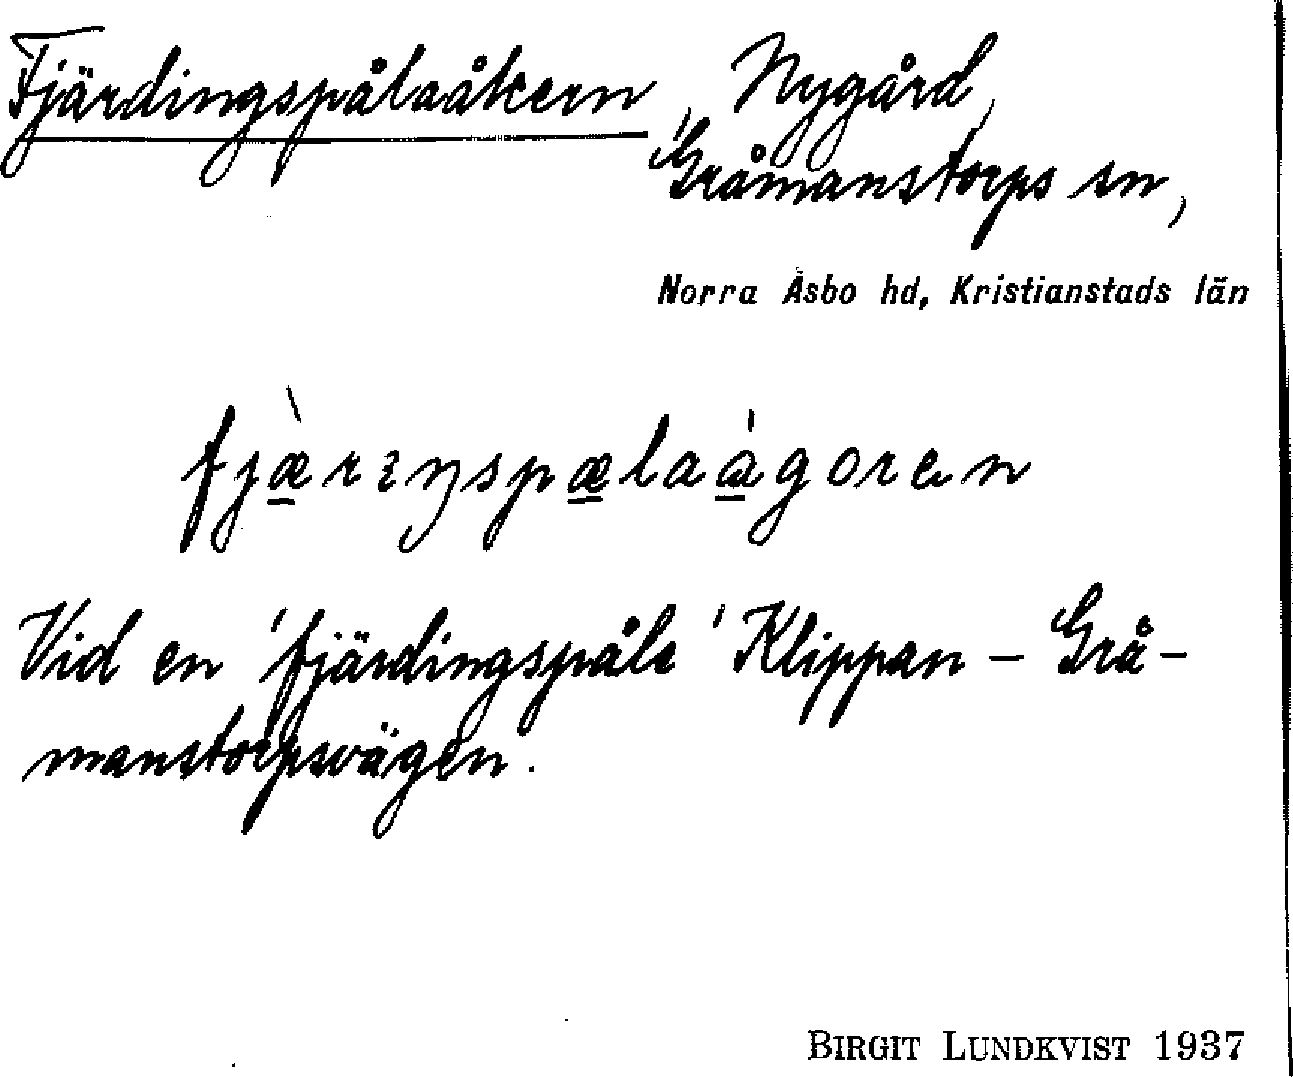 Fjärdingspålaåkern, Nygård,
Gråmanstorps sn,
Norra Åsbo hd, Kristianstads län
Vid en 'fjärdingspåle' Klippan – Grå-
manstorpsvägen.
BIRGIT LUNDKVIST 1937